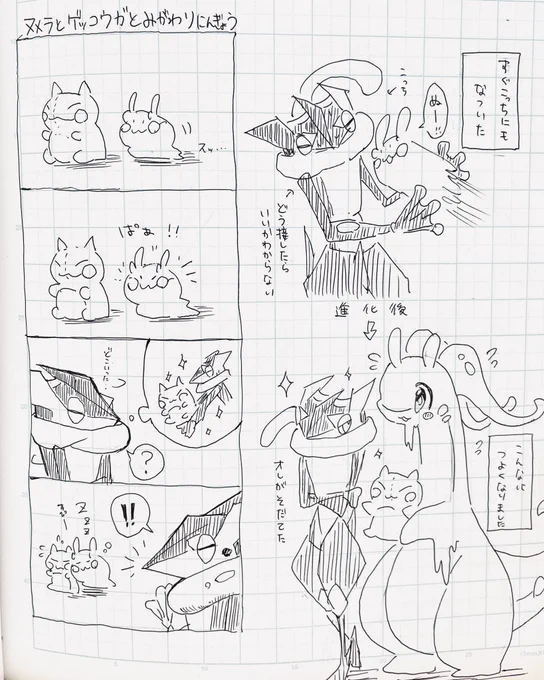 ヌメラとゲッコウガとみがわりにんぎょう
スッ…
ぱぁ!!
どこいった…
?
!!
Z
Z
Z
すぐこっちにも
なついた
こっち
ぬー!!
どう接したら
いいかわからない
進化後
こんなに
つよくなりました
オレがそだてた